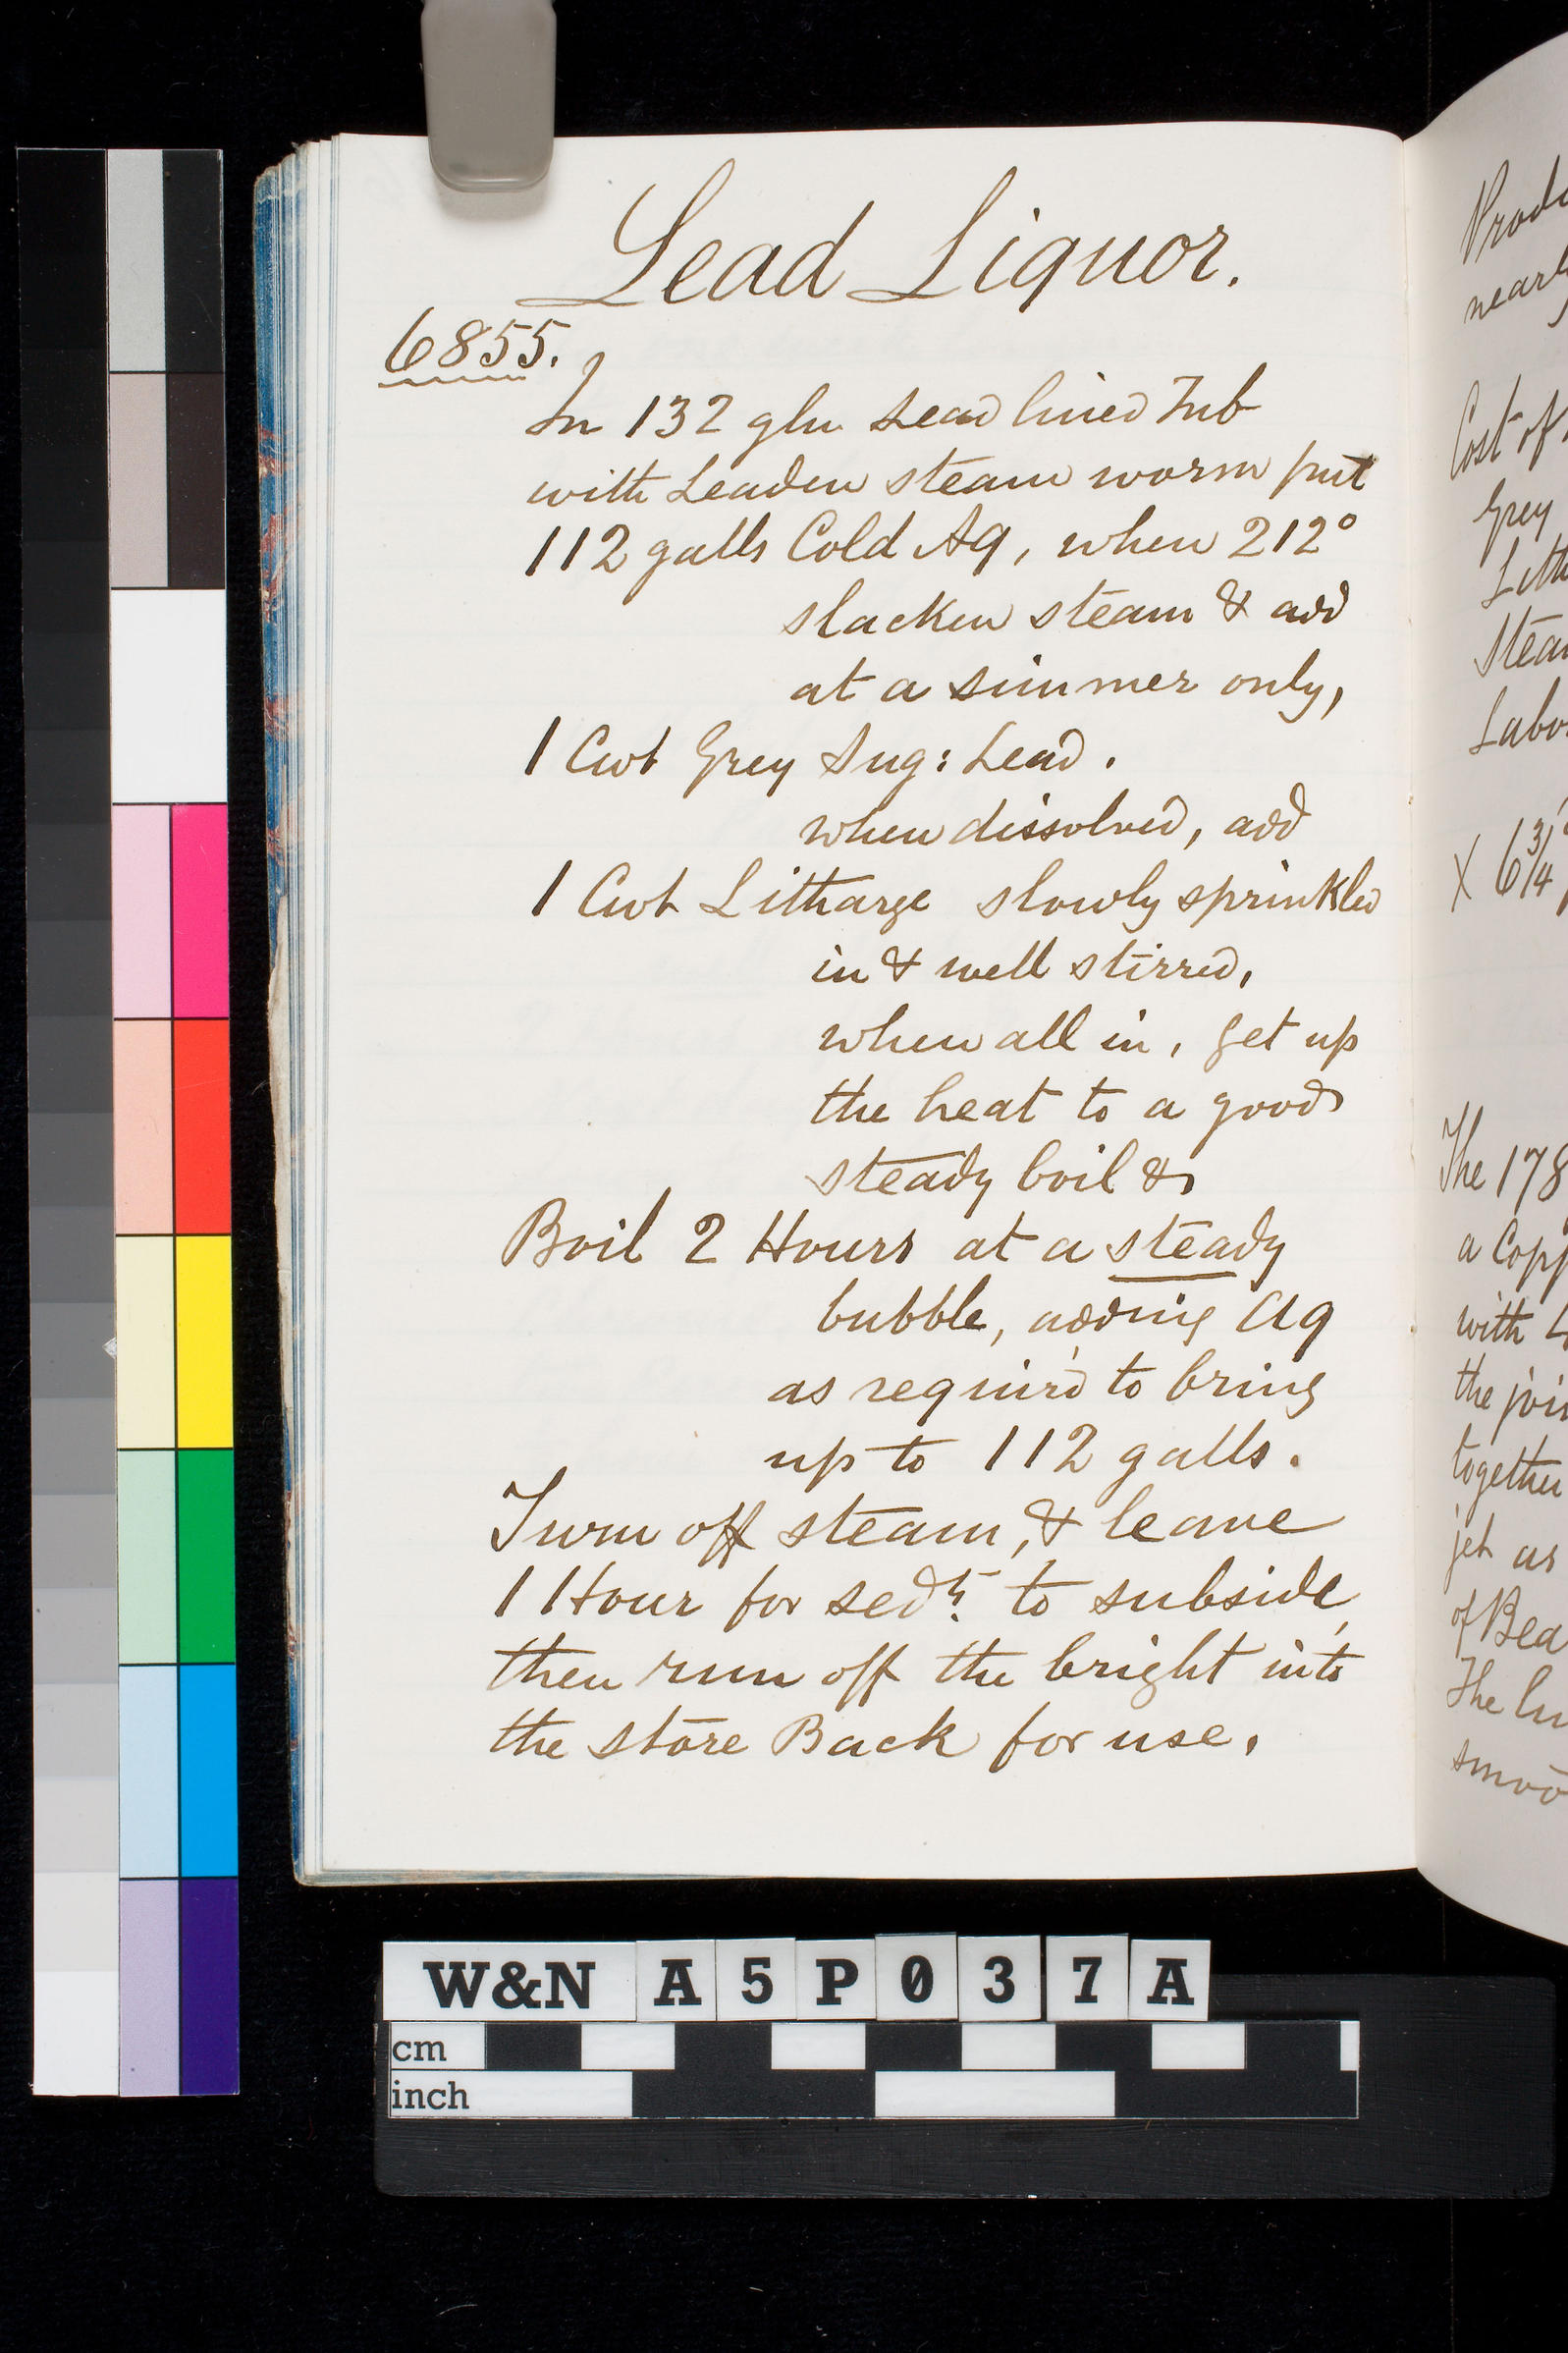 Lead Liquor.
6855.
In 132 gln Lead lined Tub
with Leaden steam worm put
112 galls Cold Aq, when 212°
slacken steam & add
at a simmer only,
1 Cwt Grey Sug: Lead.
when dissolved, add
1 Cwt Litharge slowly sprinkled
in & well stirred,
when all in, get up
the heat to a good
steady boil &
Boil 2 Hours at a steady
bubble, adding Aq
as requir'd to bring
up to 112 galls.
Turn off steam, & leave
1 Hour for sedt. to subside,
then run off the bright into
the store Back for use.
Prod
nearly
Cost of
Grey
Lith
Stea
Labo
X 6 3/4
The 178
a Copp
with L
the join
together
jet as
of Bea
The lu
smoo
W&N A5P037A
cm
inch